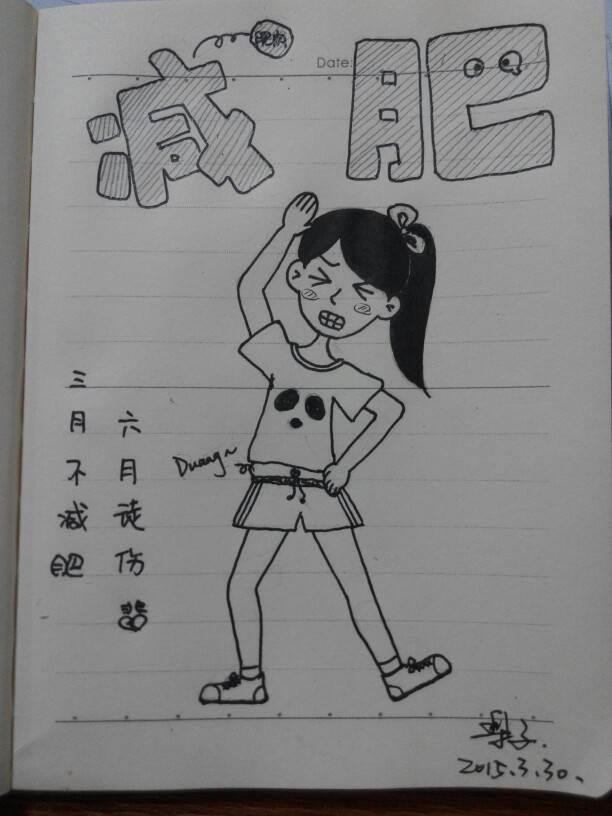 减肥
Date:
三月不减肥
六月徒伤悲
Duang~
2015.3.30.